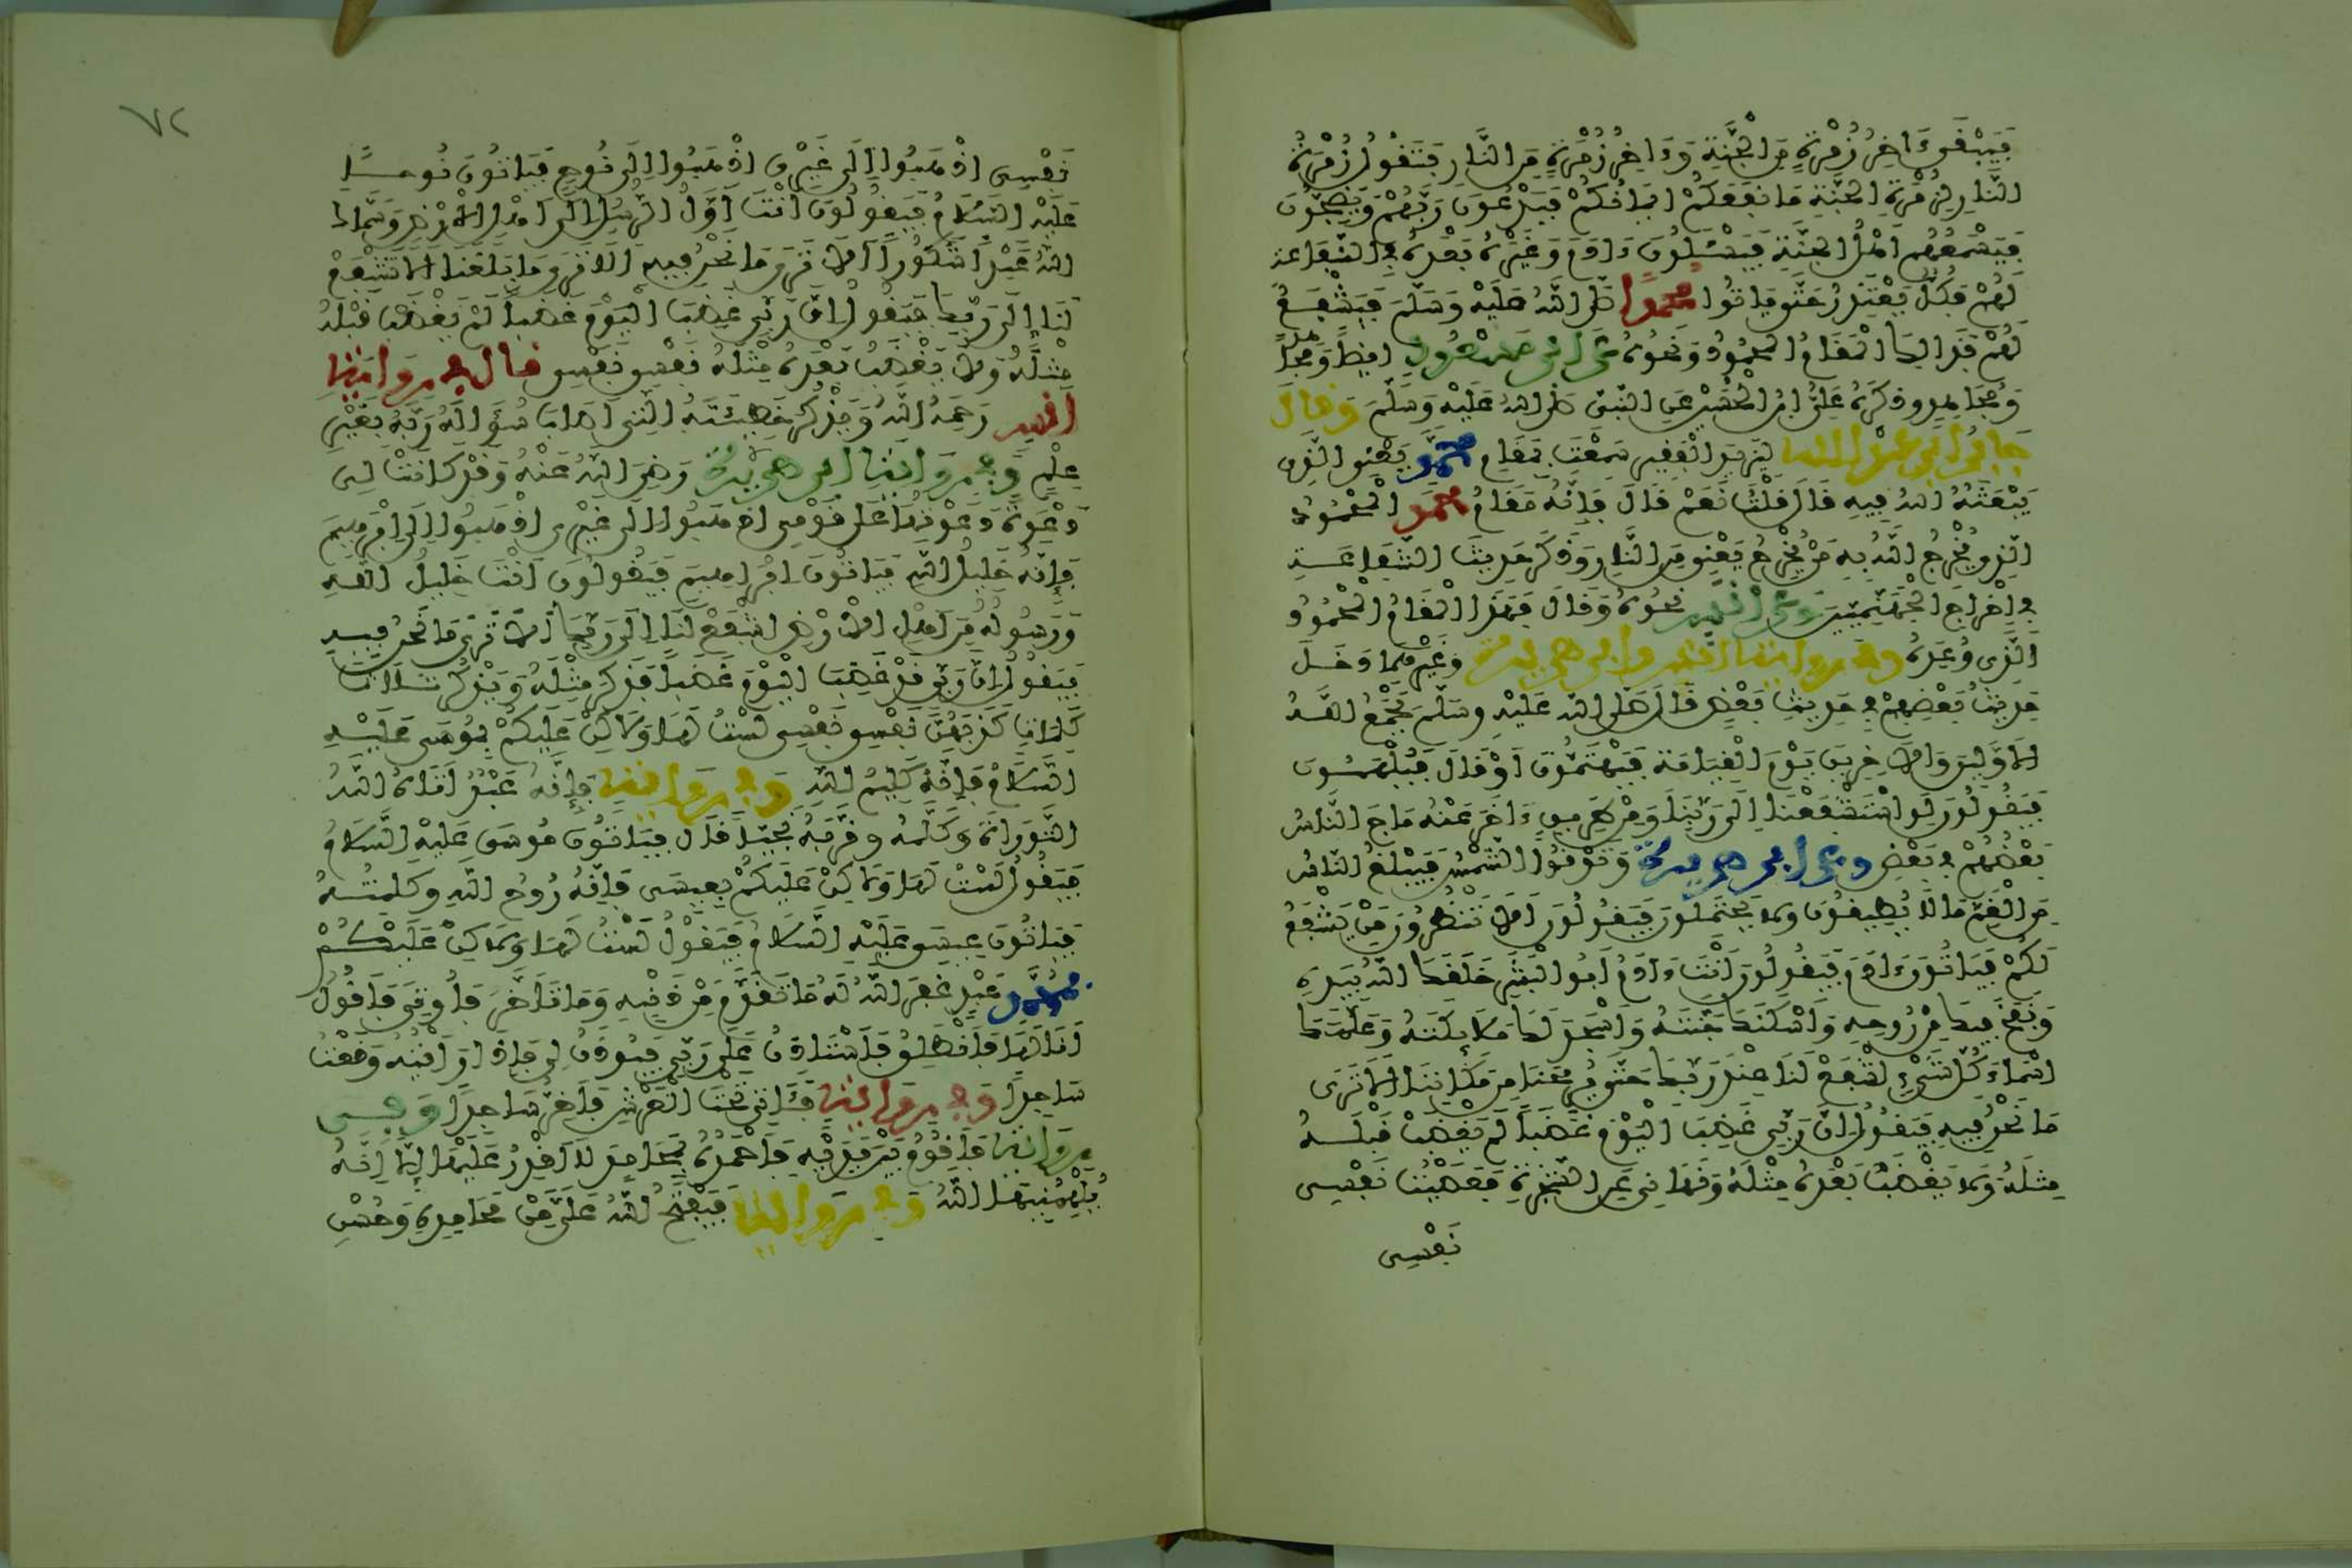 فَيَبْقَى ءَاخِرُ زُمْرَةٍ مِنَ الْجَنَّةِ وَءَاخِرُ زُمْرَةٍ مِنَ النَّارِ فَتَقُولُ زُمْرَةُ
النَّارِ لِزُمْرَةِ الْجَنَّةِ مَا نَفَعَكُمْ إِيمَانُكُمْ فَيَدْعُونَ رَبَّهُمْ وَيَضِجُّونَ
فَيَسْمَعُهُمْ أَهْلُ الْجَنَّةِ فَيَسْئَلُونَ ءَادَمَ وَغَيْرَهُ بَعْدَهُ فِي الشَّفَاعَةِ
لَهُمْ فَكُلٌّ يَعْتَذِرُ حَتَّى يَاتُوا مُحَمَّدًا صَلَّى اللهُ عَلَيْهِ وَسَلَّمَ فَيَشْفَعُ
لَهُمْ فَذَالِكَ الْمَقَامُ الْمَحْمُودُ وَنَحْوُهُ عَنِ ابْنِ مَسْعُودٍ أَيْضًا وَمُجَاهِدٍ
وَذَكَرَهُ عَلِيُّ ابْنُ الْحُسَيْنِ عَنِ النَّبِيِّ صَلَّى اللهُ عَلَيْهِ وَسَلَّمَ وَقَالَ
جَابِرُ ابْنُ عَبْدِ اللهِ لِيَزِيدَ الْفَقِيرِ سَمِعْتَ بِمَقَامِ مُحَمَّدٍ يَعْنِي الَّذِي
يَبْعَثُهُ اللهُ فِيهِ قَالَ قُلْتُ نَعَمْ قَالَ فَإِنَّهُ مَقَامُ مُحَمَّدٍ الْمَحْمُودُ
الَّذِي يُخْرِجُ اللَّهُ بِهِ مَنْ يُخْرِجُ يَعْنِي مِنَ النَّارِ وَذَكَرَ حَدِيثَ الشَّفَاعَةِ
فِي إِخْرَاجِ الْجَهَنَّمِيِّينَ وَعَنْ أَنَسٍ نَحْوُهُ وَقَالَ فَهَذَا الْمَقَامُ الْمَحْمُودُ
الَّذِي وُعِدَهُ وَفِي رِوَايَةِ أَنَسٍ وَأَبِي هُرَيْرَةَ وَغَيْرِهِمَا دَخَلَ
حَدِيثُ بَعْضِهِمْ فِي حَدِيثِ بَعْضٍ قَالَ صَلَّى اللهُ عَلَيْهِ وَسَلَّمَ يَجْمَعُ اللهُ
الْأَوَّلِينَ وَالْأَخِرِينَ يَوْمَ الْقِيَامَةِ فَيَهْتَمُّونَ أَوْ قَالَ فَيُلْهَمُونَ
فَيَقُولُونَ لَوِ اسْتَشْفَعْنَا إِلَى رَبِّنَا وَمِنْ طَرِيقٍ ءَاخَرَ عَنْهُ مَاجَ النَّاسُ
بَعْضُهُمْ فِي بَعْضٍ وَعَنْ أَبِي هُرَيْرَةَ وَتَدْنُوا الشَّمْسُ فَيَبْلُغُ النَّاسُ
مِنَ الْغَمِّ مَا لَا يُطِيقُونَ وَلَا يَحْتَمِلُونَ فَيَقُولُونَ أَلَا تَنْظُرُونَ مَنْ يَشْفَعُ
لَكُمْ فَيَاتُونَ ءَادَمَ فَيَقُولُونَ أَنْتَ ءَادَمُ أَبُو الْبَشَرِ خَلَقَكَ اللهُ بِيَدِهِ
وَنَفَخَ فِيكَ مِنْ رُوحِهِ وَأَسْكَنَكَ جَنَّتَهُ وَأَسْجَدَ لَكَ مَلَائِكَتَهُ وَعَلَّمَكَ
أَسْمَاءَ كُلِّ شَيْءٍ اشْفَعْ لَنَا عِنْدَ رَبِّكَ حَتَّى يُرِيحَنَا مِنْ مَكَانِنَا أَلَا تَرَى
مَا نَحْنُ فِيهِ فَيَقُولُ إِنَّ رَبِّي غَضِبَ الْيَوْمَ غَضَبًا لَمْ يَغْضَبْ قَبْلَهُ
مِثْلَهُ وَلَا يَغْضَبُ بَعْدَهُ مِثْلَهُ وَنَهَانِي عَنِ الشَّجَرَةِ فَعَصَيْتُ نَفْسِي
نَفْسِي
٧٢
نَفْسِي اذْهَبُوا إِلَى غَيْرِي اذْهَبُوا إِلَى نُوحٍ فَيَاتُونَ نُوحًا
عَلَيْهِ السَّلَامُ فَيَقُولُونَ أَنْتَ أَوَّلُ الرُّسُلِ إِلَى أَهْلِ الْأَرْضِ وَسَمَّاكَ
اللهُ عَبْدًا شَكُورًا أَلَا تَرَى مَا نَحْنُ فِيهِ أَلَا تَرَى مَا بَلَغَنَا أَلَا تَشْفَعُ
لَنَا إِلَى رَبِّكَ فَيَقُولُ إِنَّ رَبِّي غَضِبَ الْيَوْمَ غَضَبًا لَمْ يَغْضَبْ قَبْلَهُ
مِثْلَهُ وَلَا يَغْضَبُ بَعْدَهُ مِثْلَهُ نَفْسِي نَفْسِي قَالَ فِي رِوَايَةِ
أَنَسٍ رَحِمَهُ اللهُ وَيَذْكُرُ خَطِيئَتَهُ الَّتِي أَصَابَ سُؤَالَهُ رَبَّهُ بِغَيْرِ
عِلْمٍ وَفِي رِوَايَةِ أَبِي هُرَيْرَةَ رَضِيَ اللهُ عَنْهُ وَقَدْ كَانَتْ لِي
دَعْوَةٌ دَعَوْتُهَا عَلَى قَوْمِي اذْهَبُوا إِلَى غَيْرِي اذْهَبُوا إِلَى إِبْرَاهِيمَ
فَإِنَّهُ خَلِيلُ اللهِ فَيَاتُونَ إِبْرَاهِيمَ فَيَقُولُونَ أَنْتَ خَلِيلُ اللهِ
وَرَسُولُهُ مِنْ أَهْلِ الْأَرْضِ اشْفَعْ لَنَا إِلَى رَبِّكَ أَلَا تَرَى مَا نَحْنُ فِيهِ
فَيَقُولُ إِنَّ رَبِّي قَدْ غَضِبَ الْيَوْمَ غَضَبًا فَذَكَرَ مِثْلَهُ وَيَذْكُرُ ثَلَاثَ
كَلِمَاتٍ كَذَبَهُنَّ نَفْسِي نَفْسِي لَسْتُ لَهَا وَلَكِنْ عَلَيْكُمْ بِمُوسَى عَلَيْهِ
السَّلَامُ فَإِنَّهُ كَلِيمُ اللهِ وَفِي رِوَايَةٍ فَإِنَّهُ عَبْدٌ ءَاتَاهُ اللهُ
التَّوْرَاةَ وَكَلَّمَهُ وَقَرَّبَهُ نَجِيًّا قَالَ فَيَاتُونَ مُوسَى عَلَيْهِ السَّلَامُ
فَيَقُولُ لَسْتُ لَهَا وَلَكِنْ عَلَيْكُمْ بِعِيسَى فَإِنَّهُ رُوحُ اللهِ وَكَلِمَتُهُ
فَيَاتُونَ عِيسَى عَلَيْهِ السَّلَامُ فَيَقُولُ لَسْتُ لَهَا وَلَكِنْ عَلَيْكُمْ
بِمُحَمَّدٍ عَبْدٍ غَفَرَ اللهُ لَهُ مَا تَقَدَّمَ مِنْ ذَنْبِهِ وَمَا تَأَخَّرَ فَأُوتَى فَأَقُولُ
أَنَا لَهَا فَأَنْطَلِقُ فَأَسْتَاذِنُ عَلَى رَبِّي فَيُوذَنُ لِي فَإِذَا رَأَيْتُهُ وَقَعْتُ
سَاجِدًا وَفِي رِوَايَةٍ فَئَاتِي تَحْتَ الْعَرْشِ فَأَخِرُّ سَاجِدًا وَفِي
رِوَايَةٍ فَأَقُومُ بَيْنَ يَدَيْهِ فَأَحْمَدُهُ بِمَحَامِدَ لَا أَقْدِرُ عَلَيْهَا إِلَّا أَنَّهُ
يُلْهِمُنِيهَا اللهُ وَفِي رِوَايَةٍ فَيَفْتَحُ اللهُ عَلَيَّ مِنْ مَحَامِدِهِ وَحُسْنِ